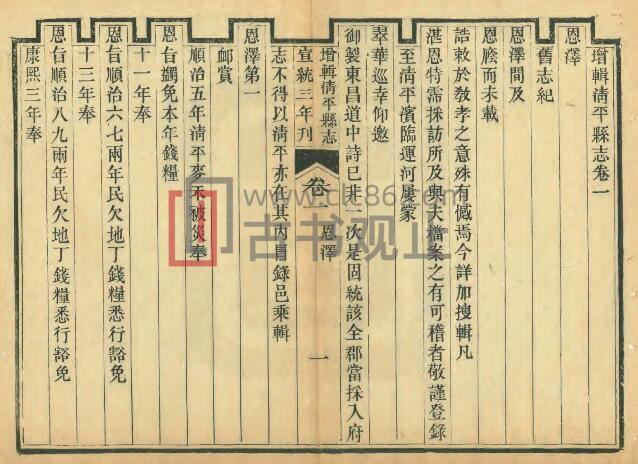 增輯淸平縣志卷一
恩澤
舊志紀
恩澤間及
恩廕而未載
誥敕於敎孝之意殊有憾焉今詳加搜輯凡
湛恩特霈採訪所及與夫檔案之有可稽者敬謹登錄
至淸平濱臨運河屢蒙
翠華巡幸仰邀
御製東昌道中詩已非一次是固統該全郡當採入府
增輯淸平縣志
宣統三年刊
卷一 恩澤 一
志不得以淸平亦在其內冒錄邑乘輯
恩澤第一
卹賞
順治五年淸平麥禾被災奉
恩旨蠲免本年錢糧
十一年奉
恩旨順治六七兩年民欠地丁錢糧悉行豁免
十三年奉
恩旨順治八九兩年民欠地丁錢糧悉行豁免
康熙三年奉
古书观止